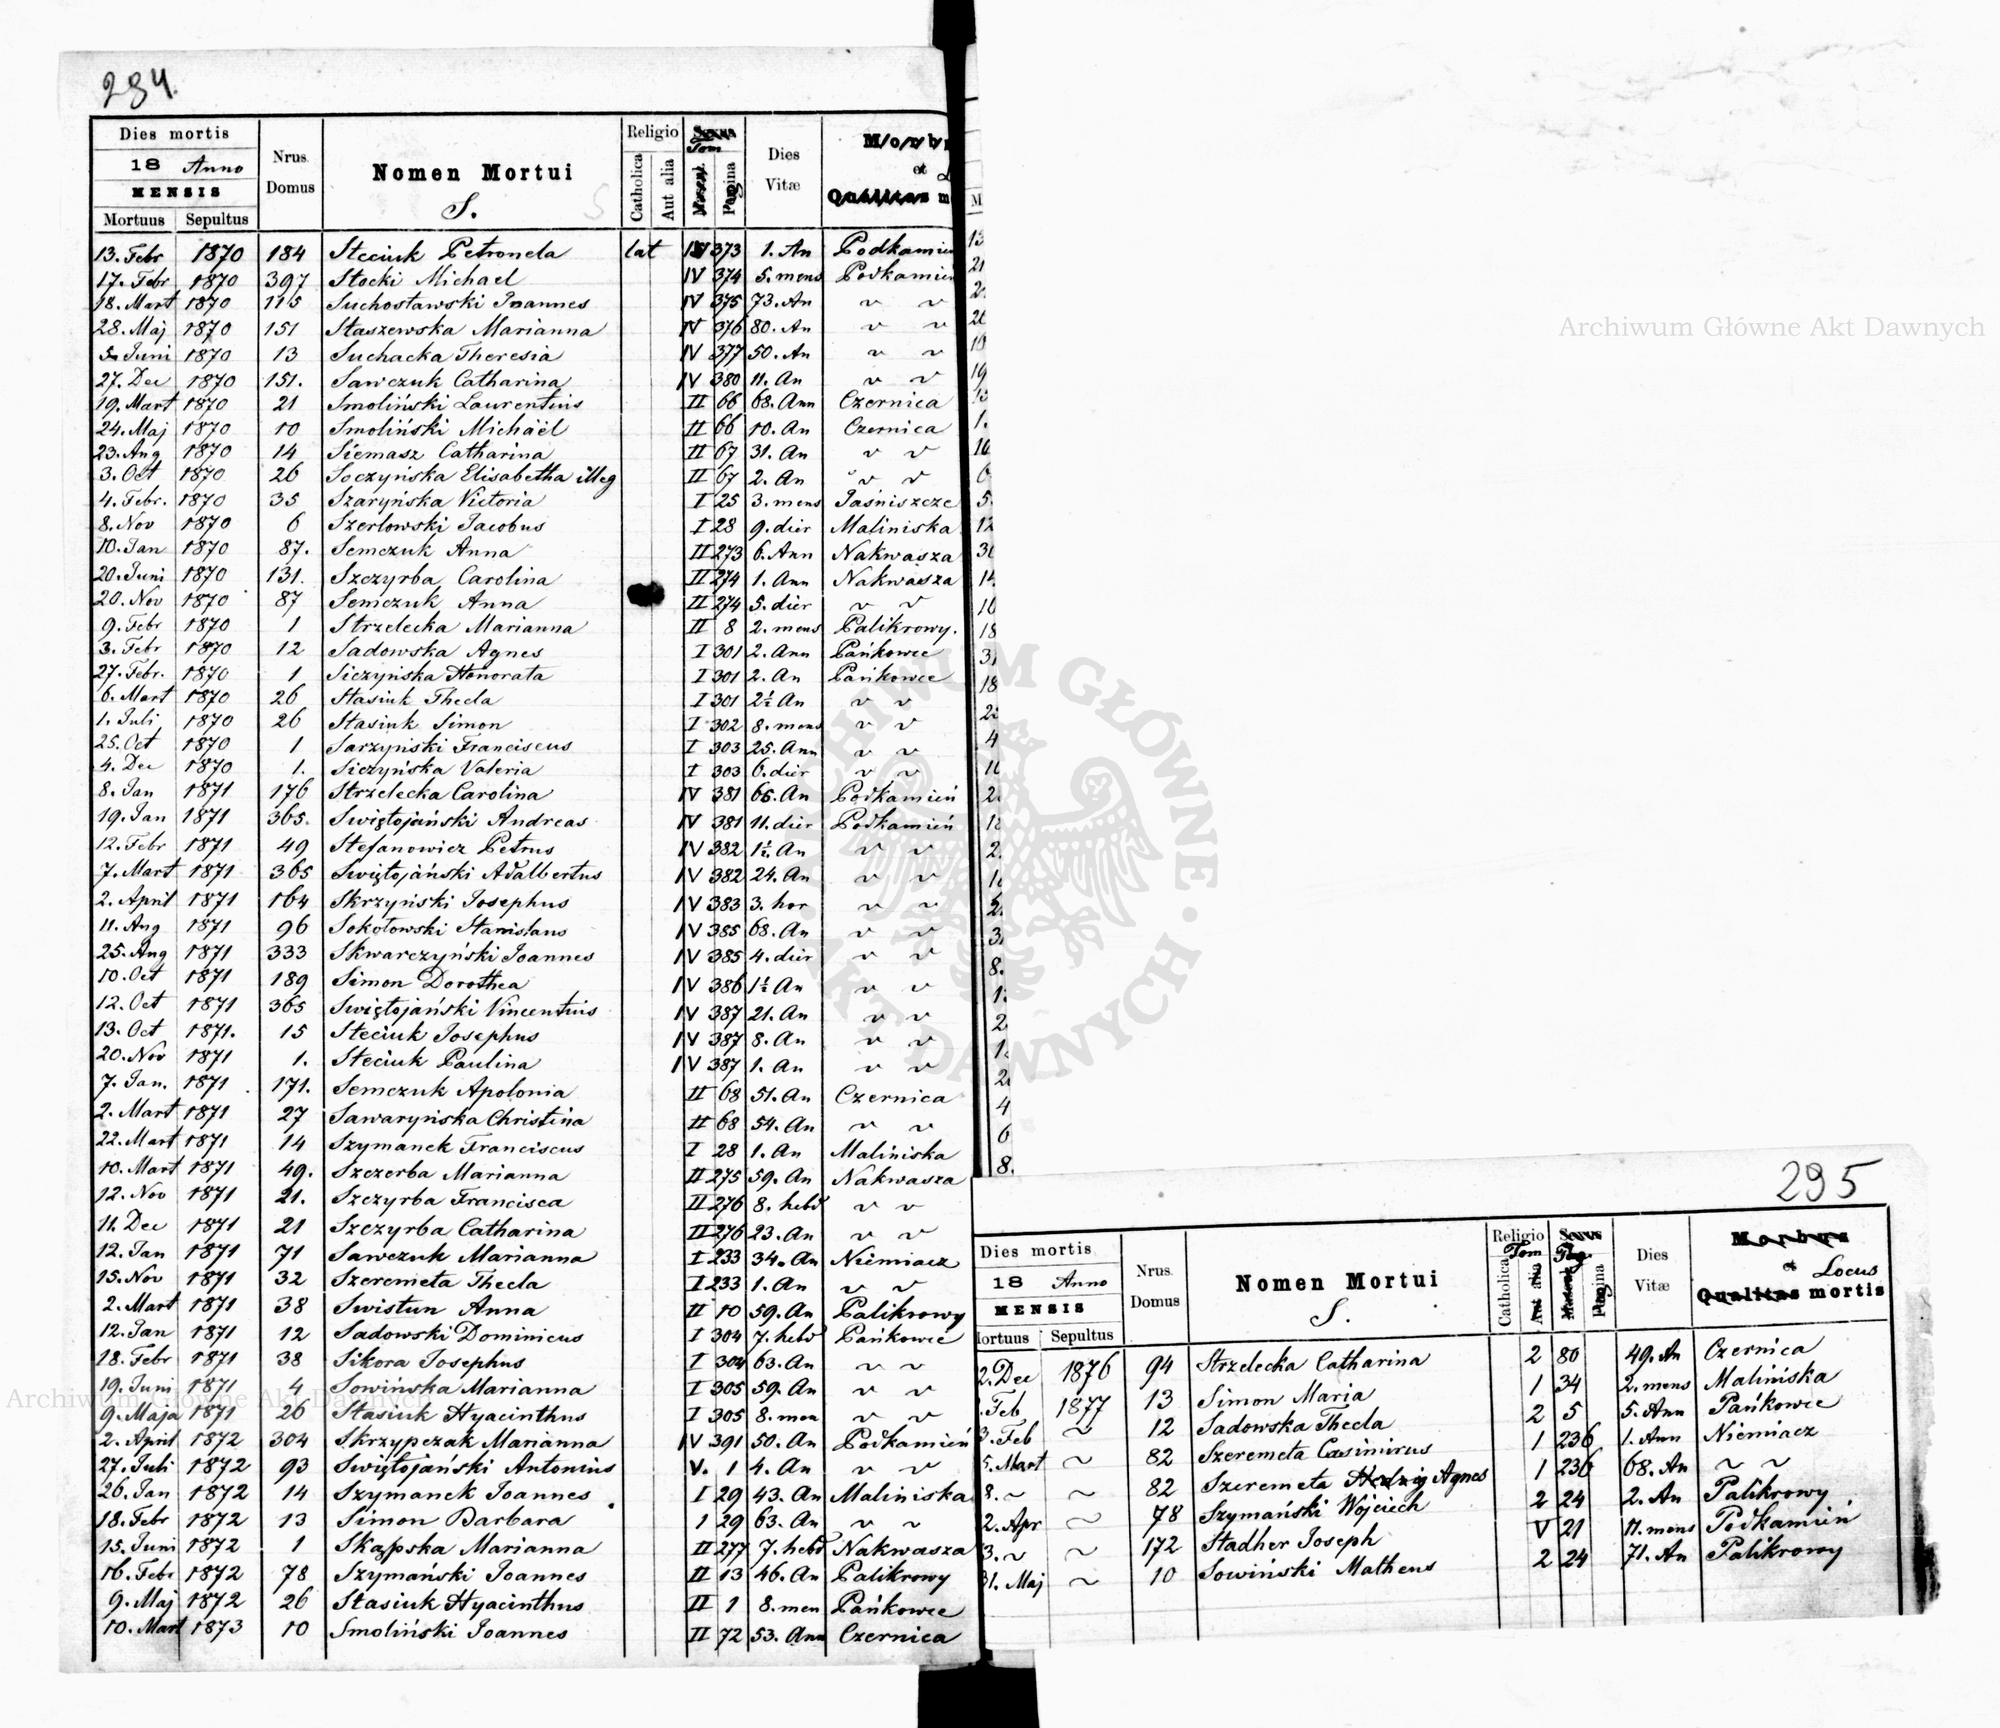 284.
Dies mortis
18 Anno
MENSIS
Mortuus Sepultus
Nrus Domus
Nomen Mortui
S.
Religio
Catholica
Aut alia
Tom
Pagina
Dies Vitæ
Morb
et
Qualitas m
13. Febr 1870 184 Steciuk Petronela lat IV 373 1. An Podkamień
17. Febr 1870 397 Stocki Michael IV 374 5. mens Podkamień
18. Mart 1870 115 Suchosławski Joannes IV 375 73. An v v
28. Maj 1870 151 Staszewska Marianna IV 376 80. An v v
5. Juni 1870 13 Suchacka Theresia IV 377 50. An v v
27. Dec 1870 151. Sawczuk Catharina IV 380 11. An v v
19. Mart 1870 21 Smoliński Laurentius II 66 68. Ann Czernica
24. Maj 1870 10 Smoliński Michaël II 66 10. An Czernica
23. Aug 1870 14 Siemasz Catharina II 67 31. An v v
3. Oct 1870 26 Soczyńska Elisabetha illeg II 67 2. An v v
4. Febr. 1870 35 Szaryńska Victoria I 25 3. mens Jaśniszcze
8. Nov 1870 6 Szerlowski Jacobus I 28 9. dier Maliniska
10. Jan 1870 87. Semczuk Anna II 273 6. Ann Nakwasza
20. Juni 1870 131. Szczyrba Carolina II 274 1. Ann Nakwasza
20. Nov 1870 87 Semczuk Anna II 274 5. dier v v
9. Febr 1870 1 Strzelecka Marianna II 8 2. mens Palikrowy.
3. Febr 1870 12 Sadowska Agnes I 301 2. Ann Pańkowce
27. Febr. 1870 1 Siczyńska Honorata I 301 2. An Pańkowce
6. Mart 1870 26 Stasiuk Thecla I 301 2½ An v v
1. Juli 1870 26 Stasiuk Simon I 302 8. mens v v
25. Oct 1870 1 Sarzyński Franciscus I 303 25. Ann v v
4. Dec 1870 1. Siczyńska Valeria I 303 6. dier v v
8. Jan 1871 176 Strzelecka Carolina IV 381 65. An Podkamień
19. Jan 1871 365. Swiętojański Andreas IV 381 11. dier Podkamień
12. Febr 1871 49 Stefanowicz Petrus IV 382 1½. An v v
7. Mart 1871 365 Swiętojański Adalbertus IV 382 24. An v v
2. April 1871 164 Skrzyński Josephus IV 383 3. hor v v
11. Aug 1871 96 Sokołowski Stanislaus IV 385 68. An v v
25. Aug 1871 333 Skwarczyński Joannes IV 385 4. dier v v
10. Oct 1871 189 Simon Dorothea IV 386 1½ An v v
12. Oct 1871 365 Swiętojański Vincentius IV 387 21. An v v
13. Oct 1871. 15 Steciuk Josephus IV 387 8. An v v
20. Nov 1871 1. Steciuk Paulina IV 387 1. An v v
7. Jan. 1871 171. Semczuk Apolonia II 68 51. An Czernica
2. Mart 1871 27 Sawaryńska Christina II 68 54. An v v
22. Mart 1871 14 Szymanek Franciscus I 28 1. An Maliniska
10. Mart 1871 49. Szczerba Marianna II 275 59. An Nakwasza
12. Nov 1871 21. Szczyrba Francisca II 276 8. hebd v v
11. Dec 1871 21 Szczyrba Catharina II 276 23. An v v
12. Jan 1871 71 Sawczuk Marianna I 233 34. An Niemiacz
15. Nov 1871 32 Szeremeta Thecla I 233 1. An v v
2. Mart 1871 38 Swistun Anna II 10 59. An Palikrowy
12. Jan 1871 12 Sadowski Dominicus I 304 7. hebd Pańkowce
18. Febr 1871 38 Sikora Josephus I 304 63. An v v
19. Juni 1871 4 Sowińska Marianna I 305 59. An v v
9. Maja 1871 26 Stasiuk Hyacinthus I 305 8. men v v
2. April 1872 304 Skrzypczak Marianna IV 391 50. An Podkamień
27. Juli 1872 93 Swiętojański Antonius V. 1 4. An v v
26. Jan 1872 14 Szymanek Joannes I 29 43. An Maliniska
18. Febr 1872 13 Simon Barbara 1 29 63. An v v
15. Juni 1872 1 Skąpska Marianna II 277 7. hebd Nakwasza
16. Febr 1872 78 Szymański Joannes II 13 46. An Palikrowy
9. Maj 1872 26 Stasiuk Hyacinthus II 1 8. men Pańkowce
10. Mart 1873 10 Smoliński Joannes II 72 53. Ann Czernica
295
Dies mortis
18 Anno
MENSIS
Mortuus Sepultus
Nrus Domus
Nomen Mortui
S.
Religio
Catholica
Aut alia
Tom
Sexus
Pag
Pagina
Dies Vitæ
Morbus
et Locus
Qualitas mortis
2. Dec 1876 94 Strzelecka Catharina 2 80 49. An Czernica
Feb 1877 13 Simon Maria 1 34 2. mens Malińska
3. Feb ~ 12 Sadowska Thecla 2 5 5. Ann Pańkowce
5. Mart ~ 82 Szeremeta Casimirus 1 236 1. Ann Niemiacz
8. ~ ~ 82 Szeremeta Agnes 1 236 68. An ~ ~
2. Apr ~ 78 Szymański Wojciech 2 24 2. An Palikrowy
3. ~ ~ 172 Stadher Joseph V 21 11. mens Podkamień
31. Maj ~ 10 Sowiński Matheus 2 24 71. An Palikrowy
Archiwum Główne Akt Dawnych
Archiwum Główne Akt Dawnych
ARCHIWUM GŁÓWNE · AKT DAWNYCH ·